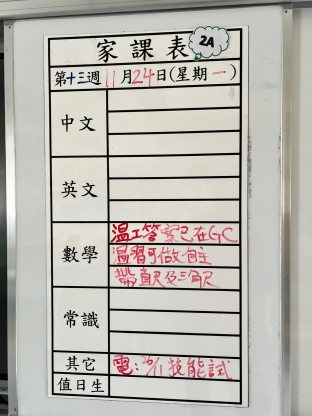 家課表 2A
第十三週 11月24日(星期一)
中文
英文
數學 溫工答案已在GC
溫習可做自主
帶直尺及三角尺
常識
其它 電:26/11 技能試
值日生